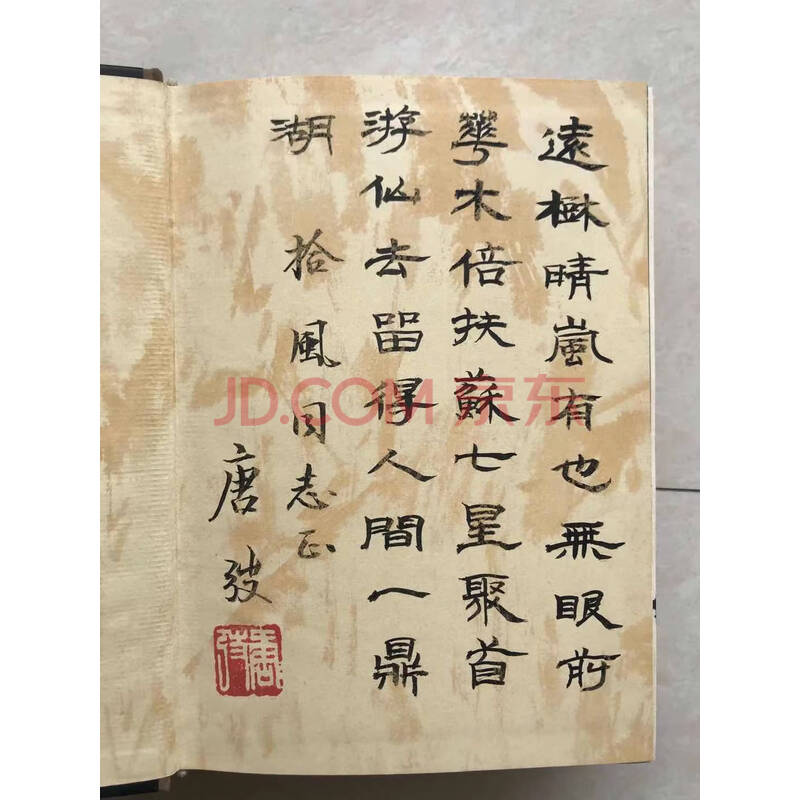 遠樹晴嵐有也無眼前
華木倍扶蘇七星聚首
游仙去留得人間一鼎
湖 拾風同志正
唐弢
JD.COM 京东